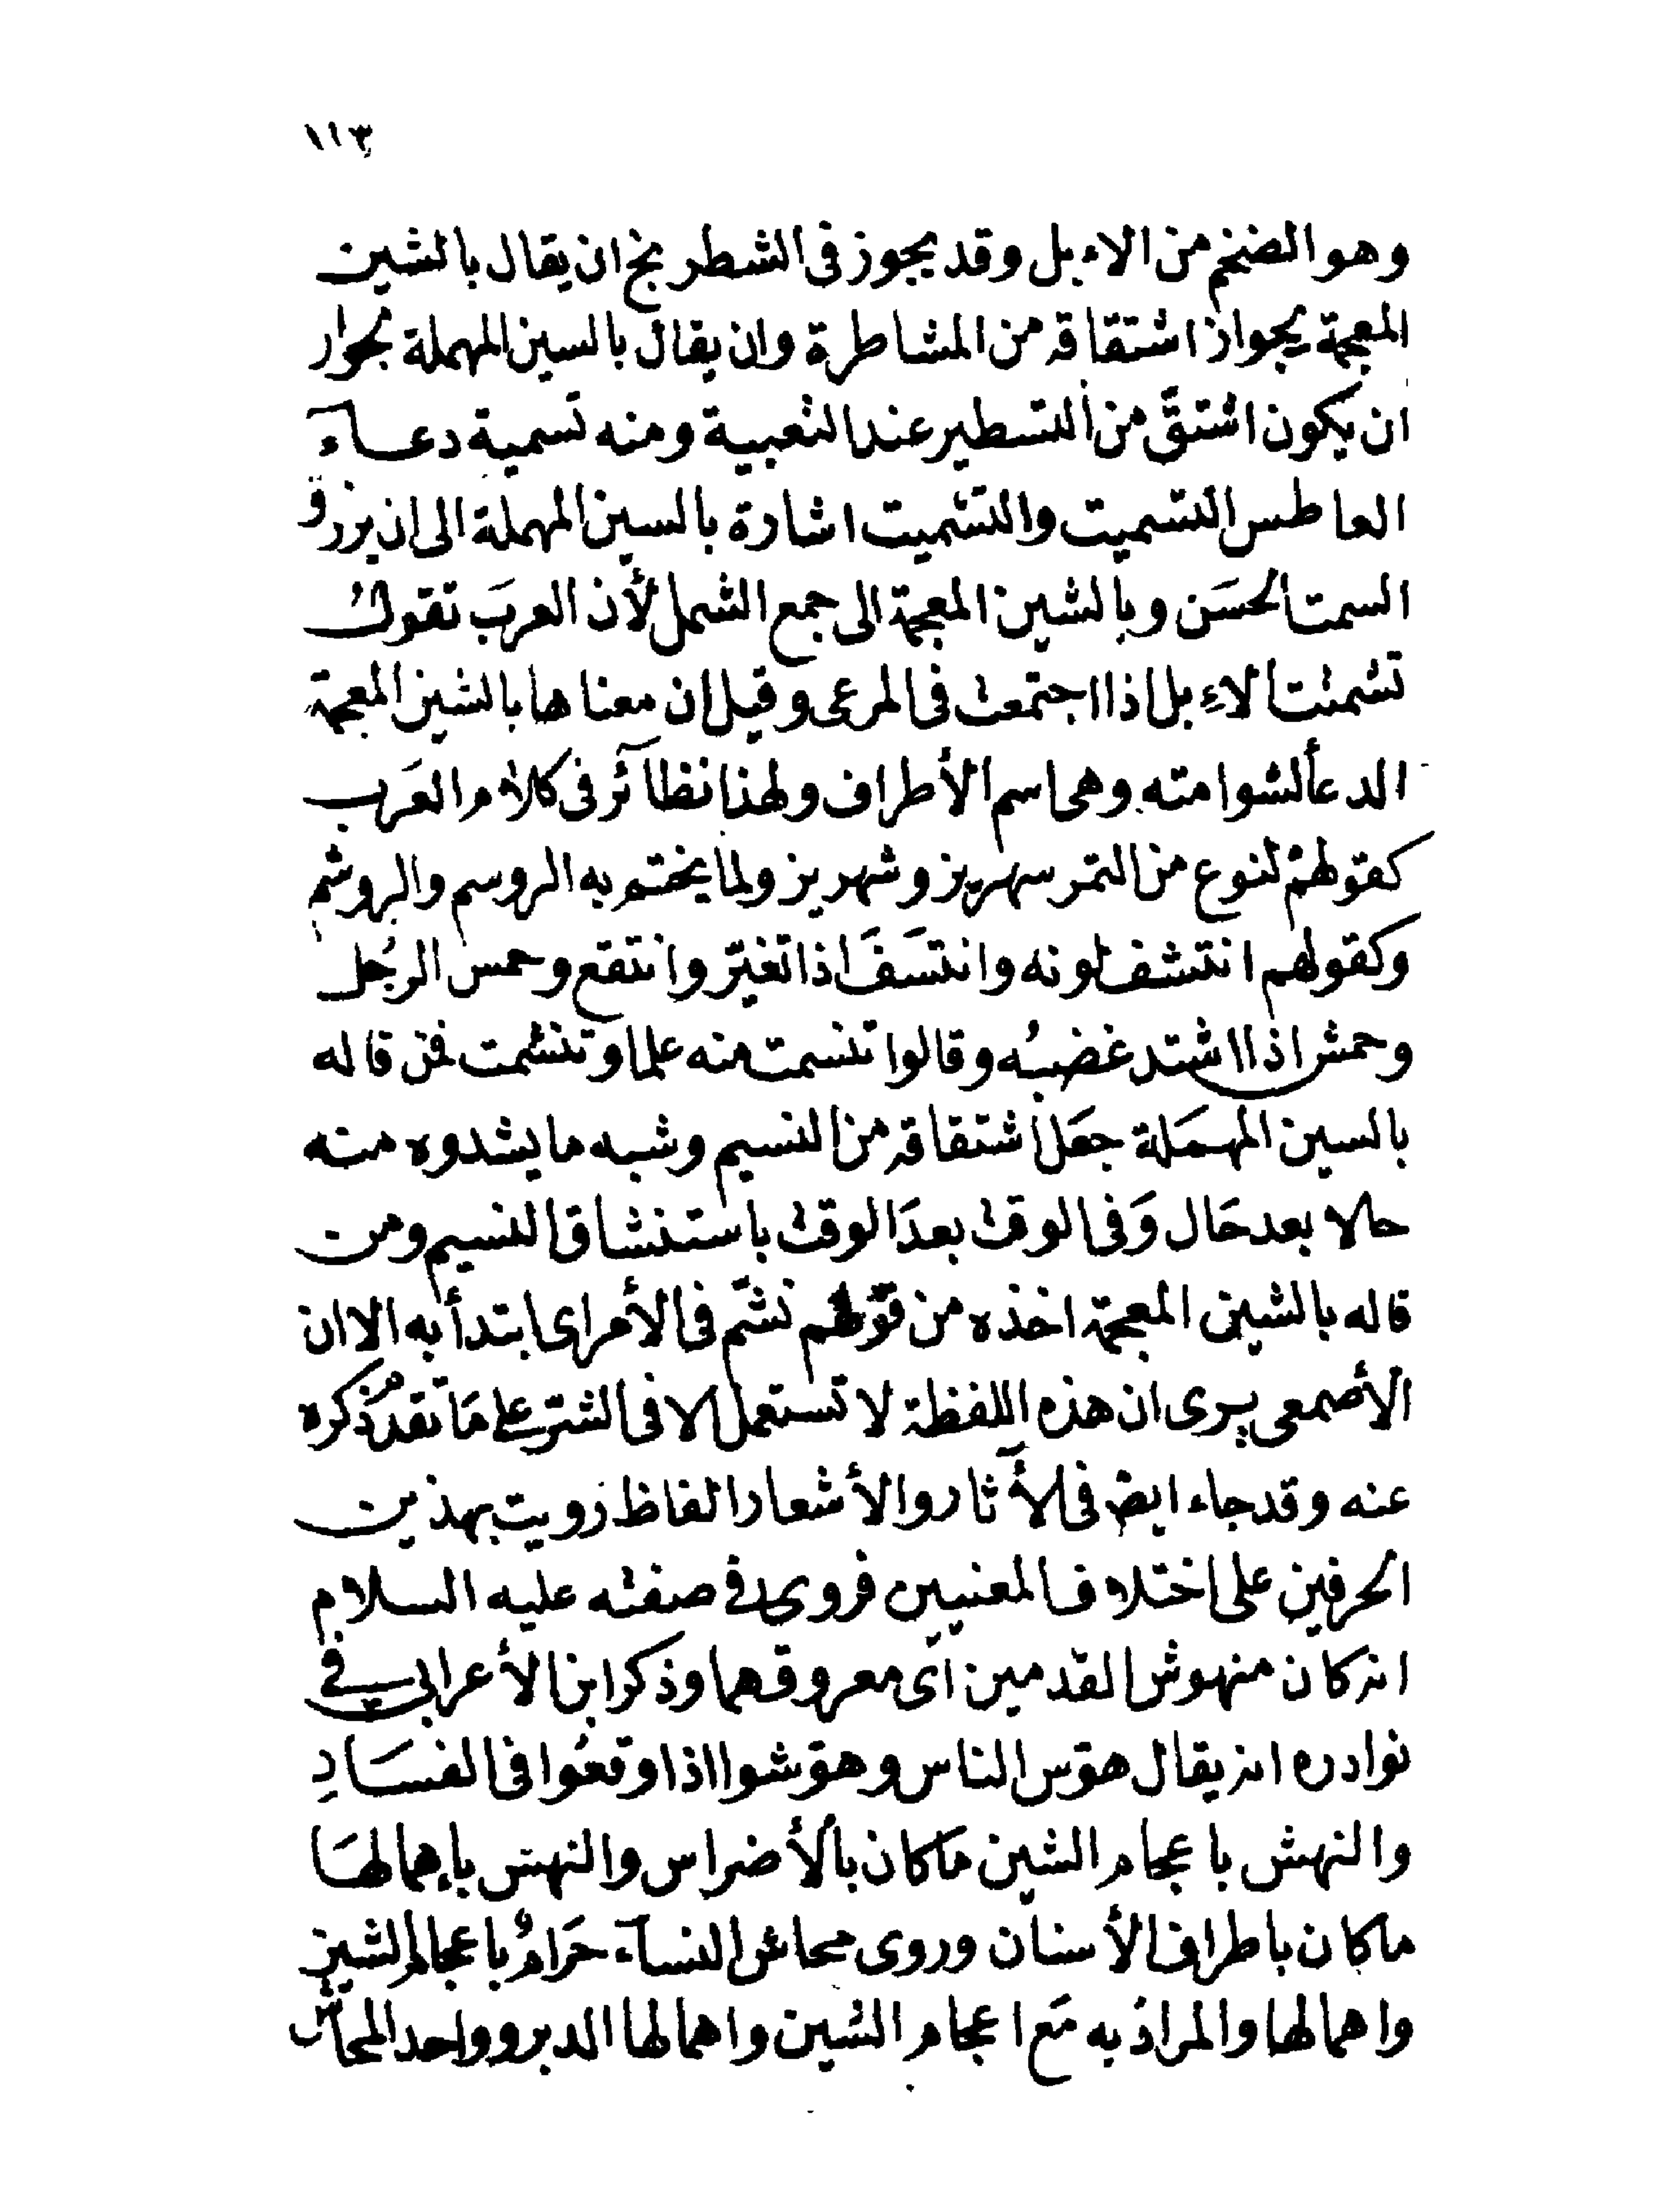 ١١٣
وهو الضخم من الاءبل وقد يجوز فى الشطرنج ان يقال بالشين
المعجمة لجواز اشتقاقه من المشاطرة وان يقال بالسين المهملة لجواز
ان يكون اشتقَّ من التسطير عند التعبية ومنه تسمية دعآء
العاطس التسميت والتشميت اشارة بالسين المهملة الى ان يرزق
السمت الحسَن وبالشين المعجمة الى جمع الشمل لأن العربَ تقول
تشمتت الاءبل اذا اجتمعت فى المرعى وقيل ان معناها بالشين المعجمة
الدعأ لشوامته وهى اسم الأطراف ولهذا نظآئر فى كلام العَرب
كقولهم لنوع من التمر سهريز وشهريز ولما يختم به الروسم والروشم
وكقولهم انتشف لونه وانتسَفَ اذا تغيّر وانتقع وحمس الرجُل
وحمش اذا اشتد غضبُه وقالوا تنسمت منه علما وتنشمت فمن قاله
بالسين المهمَلة جعَل اشتقاقه من النسيم وشبه ما يشدوه منه
حالا بعد حَال وَفى الوقت بعدَ الوقت باستنشاق النسيم ومن
قاله بالشين المعجمة اخذه من قولهم نشّم فى الأمر اى ابتدأ به الا ان
الأصمعى يرى ان هذه اللفظة لا تستعمل الا فى الشرّ على مَا تقدّم ذكره
عنه وقد جاء ايض فى الأآثار والأشعار الفاظ رُويت بهذين
الحرفين على اختلاف المعنيين فروى فى صفته عليه السلام
انه كان منهوش القدمين اى معروقهما وذكر ابن الأعرابى فى
نوادره انه يقال هوّس الناس وهوّشوا اذا وقعُوا فى الفسَادِ
والنهش باعجام الشين ما كان بالأضراس والنهس باهمالهَا
ما كان باطراف الأسنان وروى محاش النسآء حَرامٌ باعجام الشين
واهمالها والمرادُ به مَع اعجام الشين واهمالها الدبر وواحد المحاش